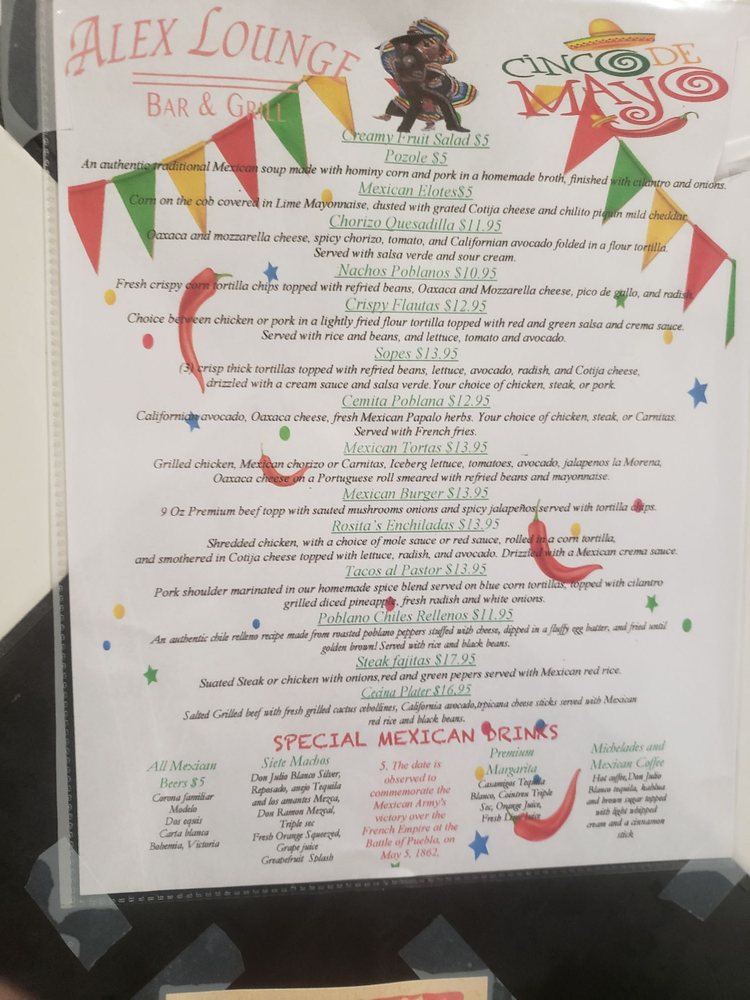 ALEX LOUNGE
BAR & GRILL
CINCO DE
MAYO
Creamy Fruit Salad $5
Pozole $5
An authentic traditional Mexican soup made with hominy corn and pork in a homemade broth, finished with cilantro and onions.
Mexican Elotes$5
Corn on the cob covered in Lime Mayonnaise, dusted with grated Cotija cheese and chilito piquin mild cheddar
Chorizo Quesadilla $11.95
Oaxaca and mozzarella cheese, spicy chorizo, tomato, and Californian avocado folded in a flour tortilla.
Served with salsa verde and sour cream.
Nachos Poblanos $10.95
Fresh crispy corn tortilla chips topped with refried beans, Oaxaca and Mozzarella cheese, pico de gallo, and radish
Crispy Flautas $12.95
Choice between chicken or pork in a lightly fried flour tortilla topped with red and green salsa and crema sauce.
Served with rice and beans, and lettuce, tomato and avocado.
Sopes $13.95
(3) crisp thick tortillas topped with refried beans, lettuce, avocado, radish, and Cotija cheese,
drizzled with a cream sauce and salsa verde. Your choice of chicken, steak, or pork.
Cemita Poblana $12.95
Californian avocado, Oaxaca cheese, fresh Mexican Papalo herbs. Your choice of chicken, steak, or Carnitas.
Served with French fries.
Mexican Tortas $13.95
Grilled chicken, Mexican chorizo or Carnitas, Iceberg lettuce, tomatoes, avocado, jalapenos la Morena,
Oaxaca cheese on a Portuguese roll smeared with refried beans and mayonnaise.
Mexican Burger $13.95
9 Oz Premium beef topp with sauted mushrooms onions and spicy jalapeños served with tortilla chips.
Rosita's Enchiladas $13.95
Shredded chicken, with a choice of mole sauce or red sauce, rolled in a corn tortilla,
and smothered in Cotija cheese topped with lettuce, radish, and avocado. Drizzled with a Mexican crema sauce.
Tacos al Pastor $13.95
Pork shoulder marinated in our homemade spice blend served on blue corn tortillas, topped with cilantro
grilled diced pineapple, fresh radish and white onions.
Poblano Chiles Rellenos $11.95
An authentic chile relleno recipe made from roasted poblano peppers stuffed with cheese, dipped in a fluffy egg batter, and fried until
golden brown! Served with rice and black beans.
Steak fajitas $17.95
Suated Steak or chicken with onions,red and green pepers served with Mexican red rice.
Cecina Plater $16.95
Salted Grilled beef with fresh grilled cactus cebollines, California avocado,trpicana cheese sticks served with Mexican
red rice and black beans.
SPECIAL MEXICAN DRINKS
All Mexican
Beers $5
Corona familiar
Modelo
Dos eqsis
Carta blanca
Bohemia, Victoria
Siete Machos
Don Julio Blanco Silver,
Reposado, anejo Tequila
and los amantes Mezca,
Don Ramon Mezcal,
Triple sec
Fresh Orange Squeezed,
Grape juice
Greapefruit Splash
5. The date is
observed to
commemorate the
Mexican Army's
victory over the
French Empire at the
Battle of Puebla, on
May 5, 1862,
Premium
Margarita
Casamigos Tequila
Blanco, Cointreu Triple
Sec, Orange Juice,
Fresh Lime Juice
Michelades and
Mexican Coffee
Hot coffee,Don Julio
Blanco tequila, kahlua
and brown sugar topped
with light whipped
cream and a cinnamon
stick